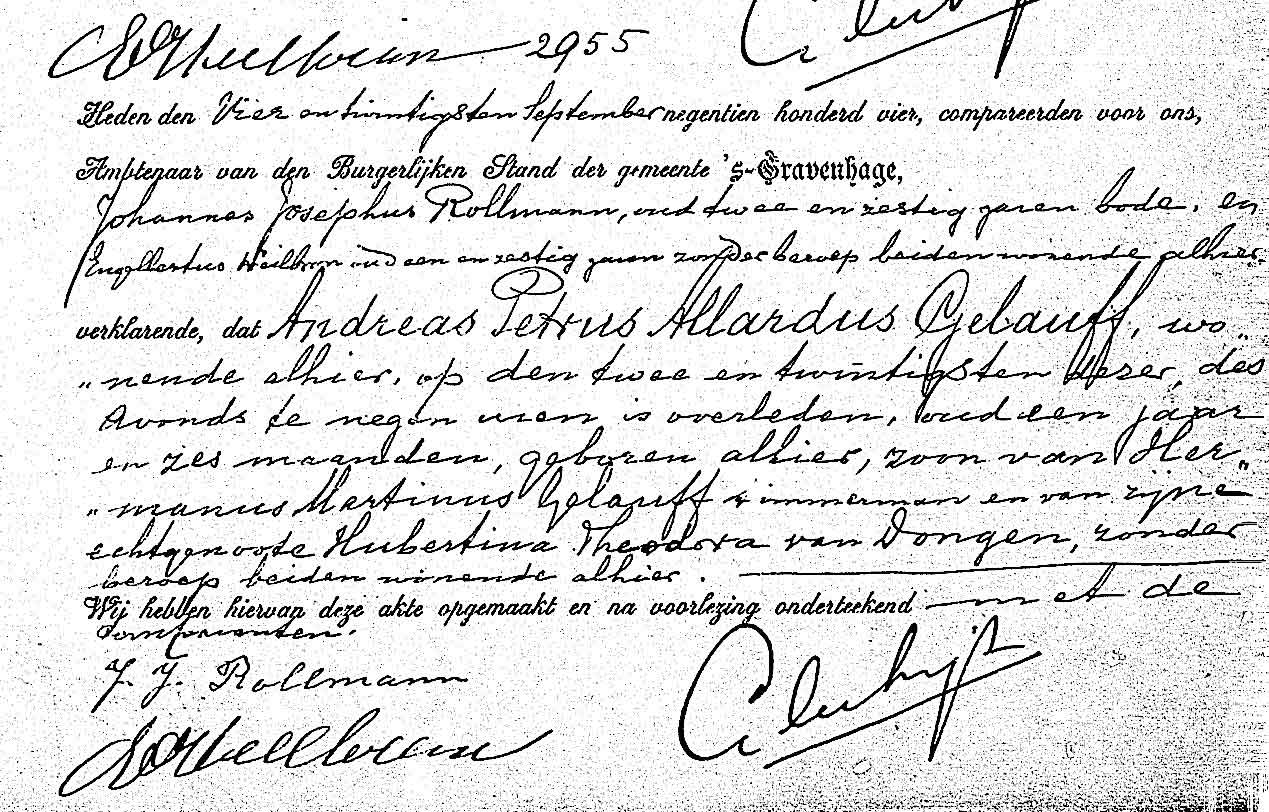 2955
Heden den Vier en twintigsten September negentien honderd vier, compareerden voor ons,
Ambtenaar van den Burgerlijken Stand der gemeente 's-Gravenhage,
Johannes Josephus Rollmann, oud twee en zestig jaren bode, en
Engelbertus Heilbron oud een en zestig jaren zonder beroep beiden wonende alhier
verklarende, dat Andreas Petrus Allardus Gelauff, wo„
„nende alhier, op den twee en twintigsten dezer, des
Avonds te negen uren is overleden, oud een jaar
en zes maanden, geboren alhier, zoon van Her„
„manus Martinus Gelauff timmerman en van zijne
echtgenoote Hubertina Theodora van Dongen, zonder
beroep beiden wonende alhier.
Wij hebben hiervan deze akte opgemaakt en na voorlezing onderteekend met de
comparanten.
J. J. Rollmann